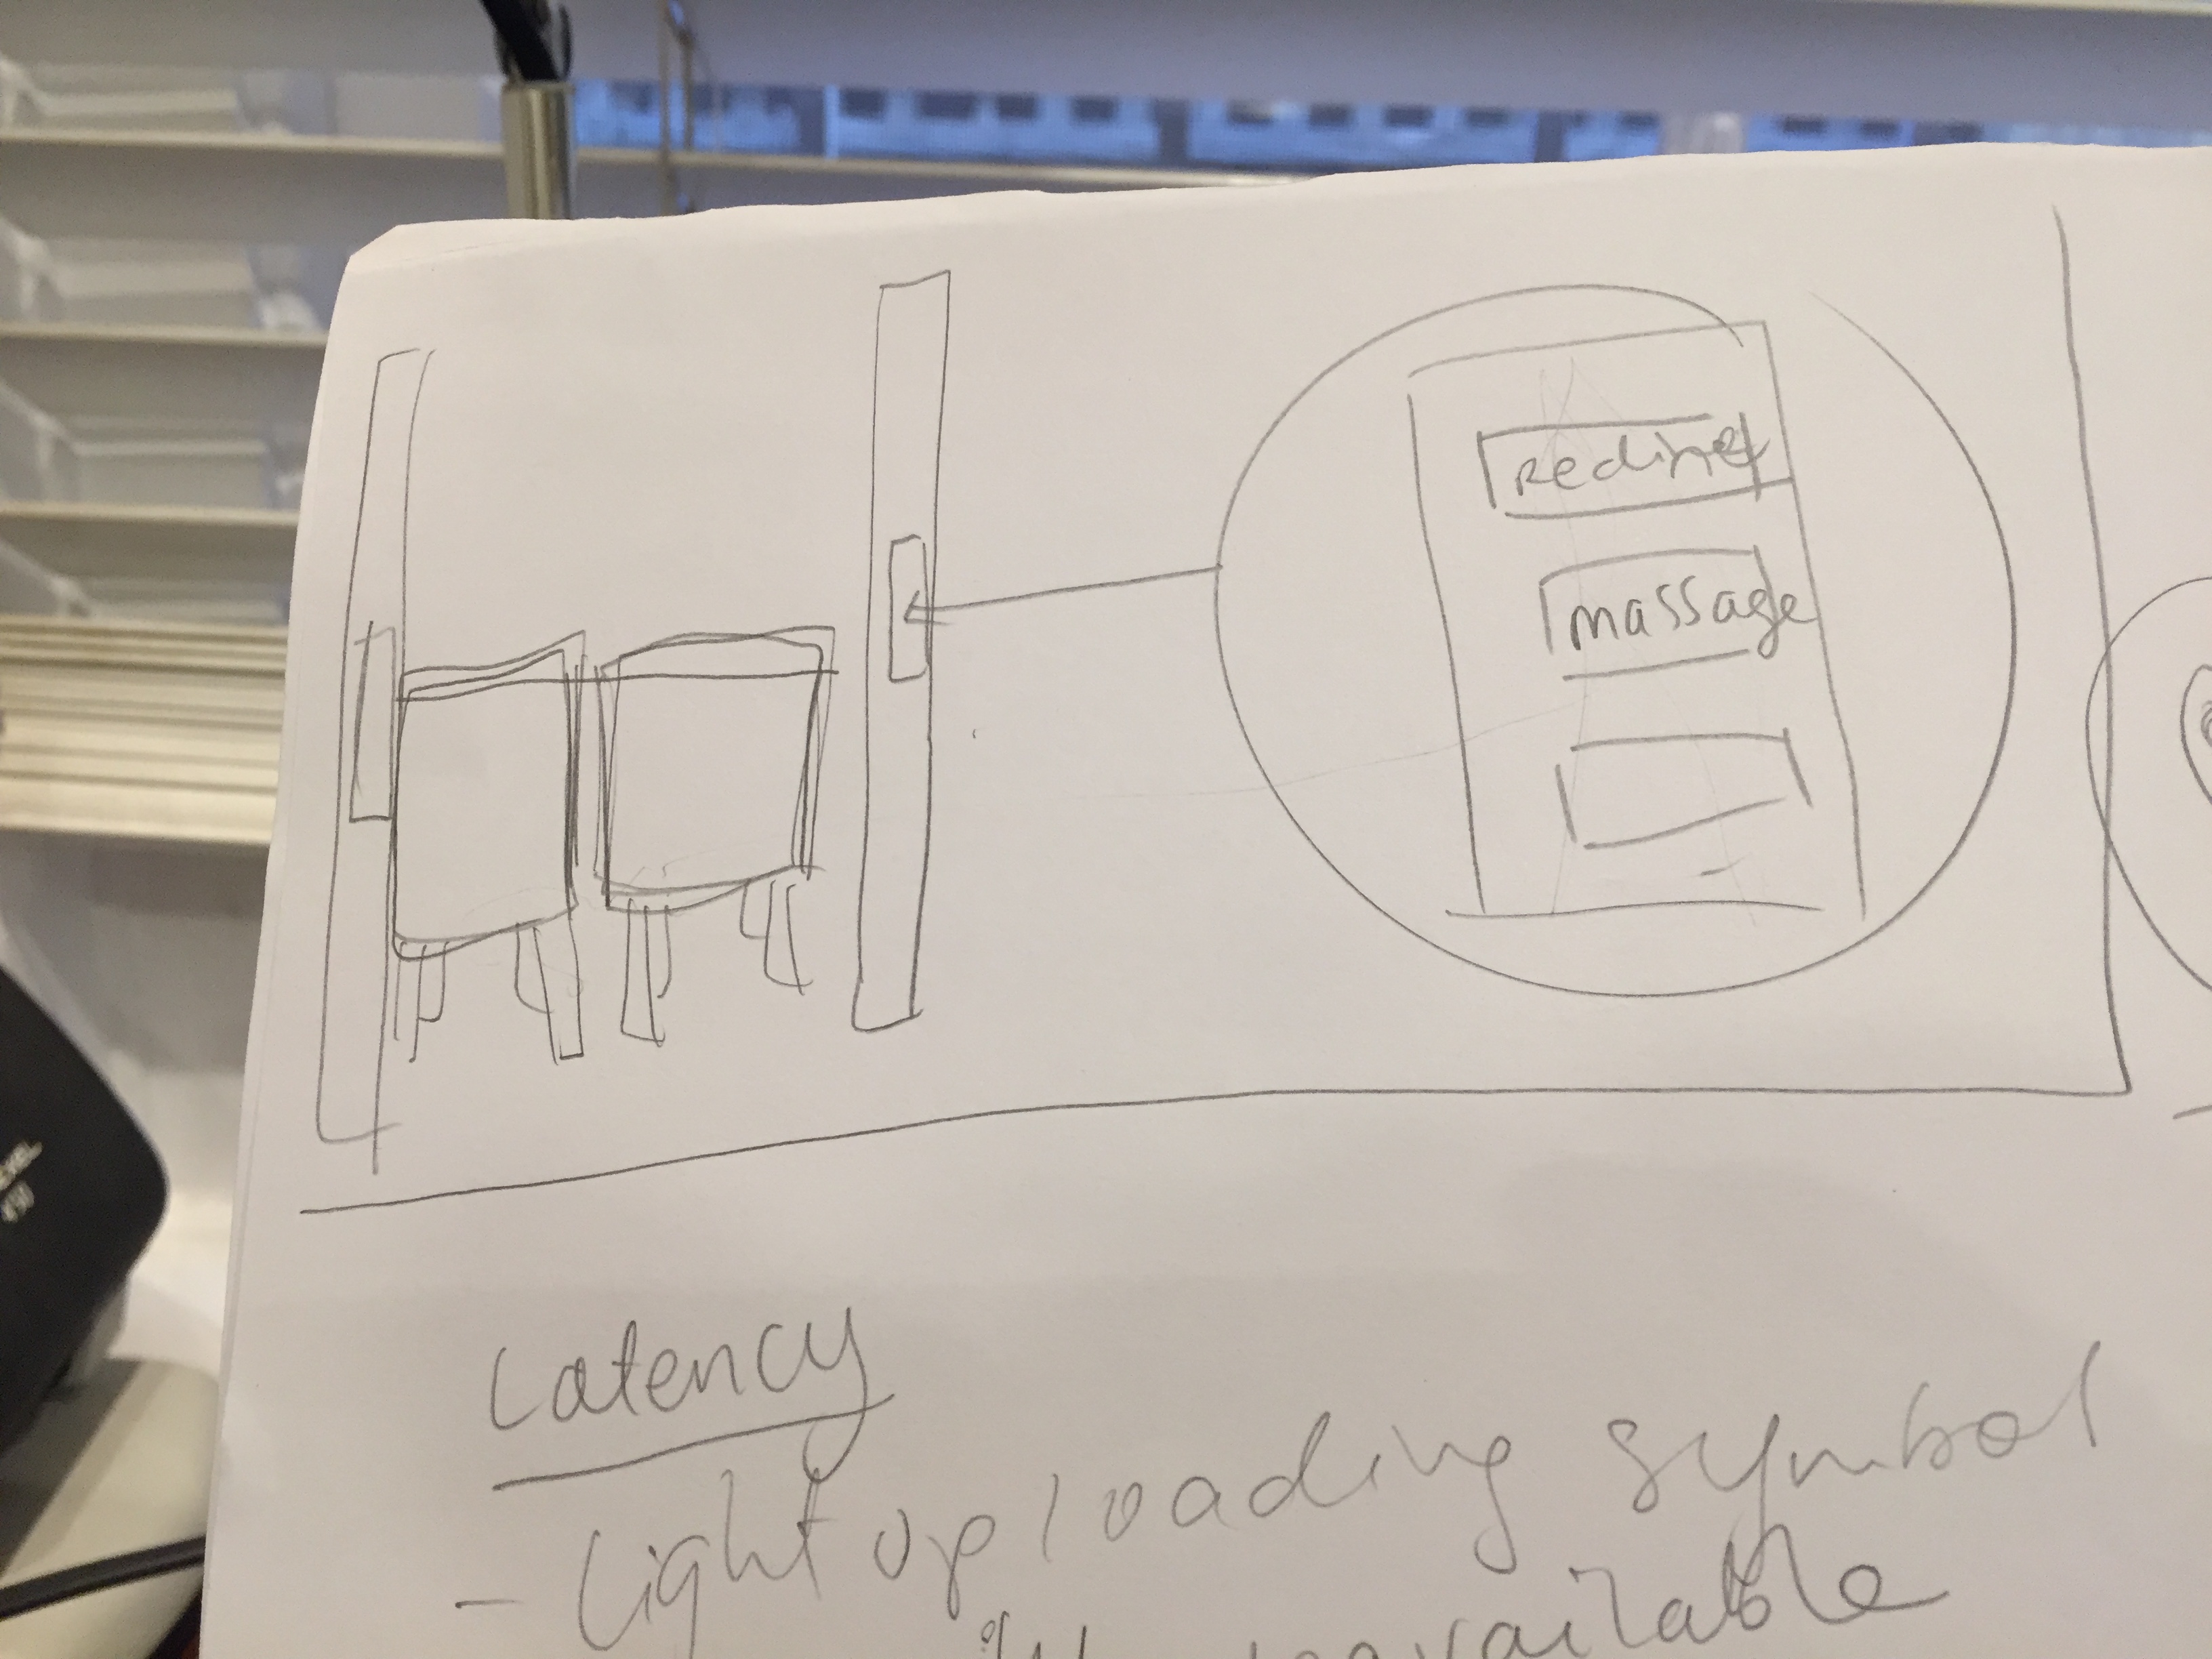 recliner
massage
Latency
- light up loading symbol
available